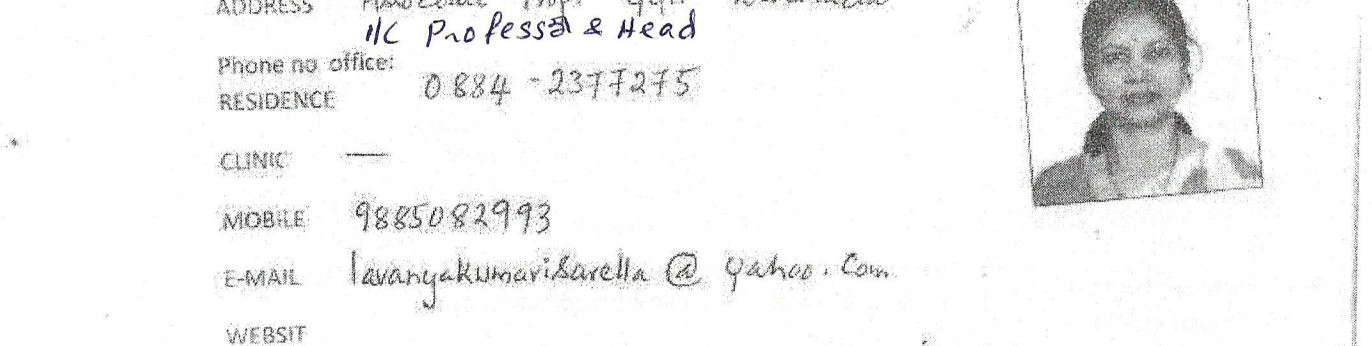 ADDRESS
I/C Professor & Head
Phone no office:
0884 - 2377275
RESIDENCE
CLINIC —
MOBILE 9885082993
E-MAIL lavanyakumarisarella @ yahoo.com
WEBSIT